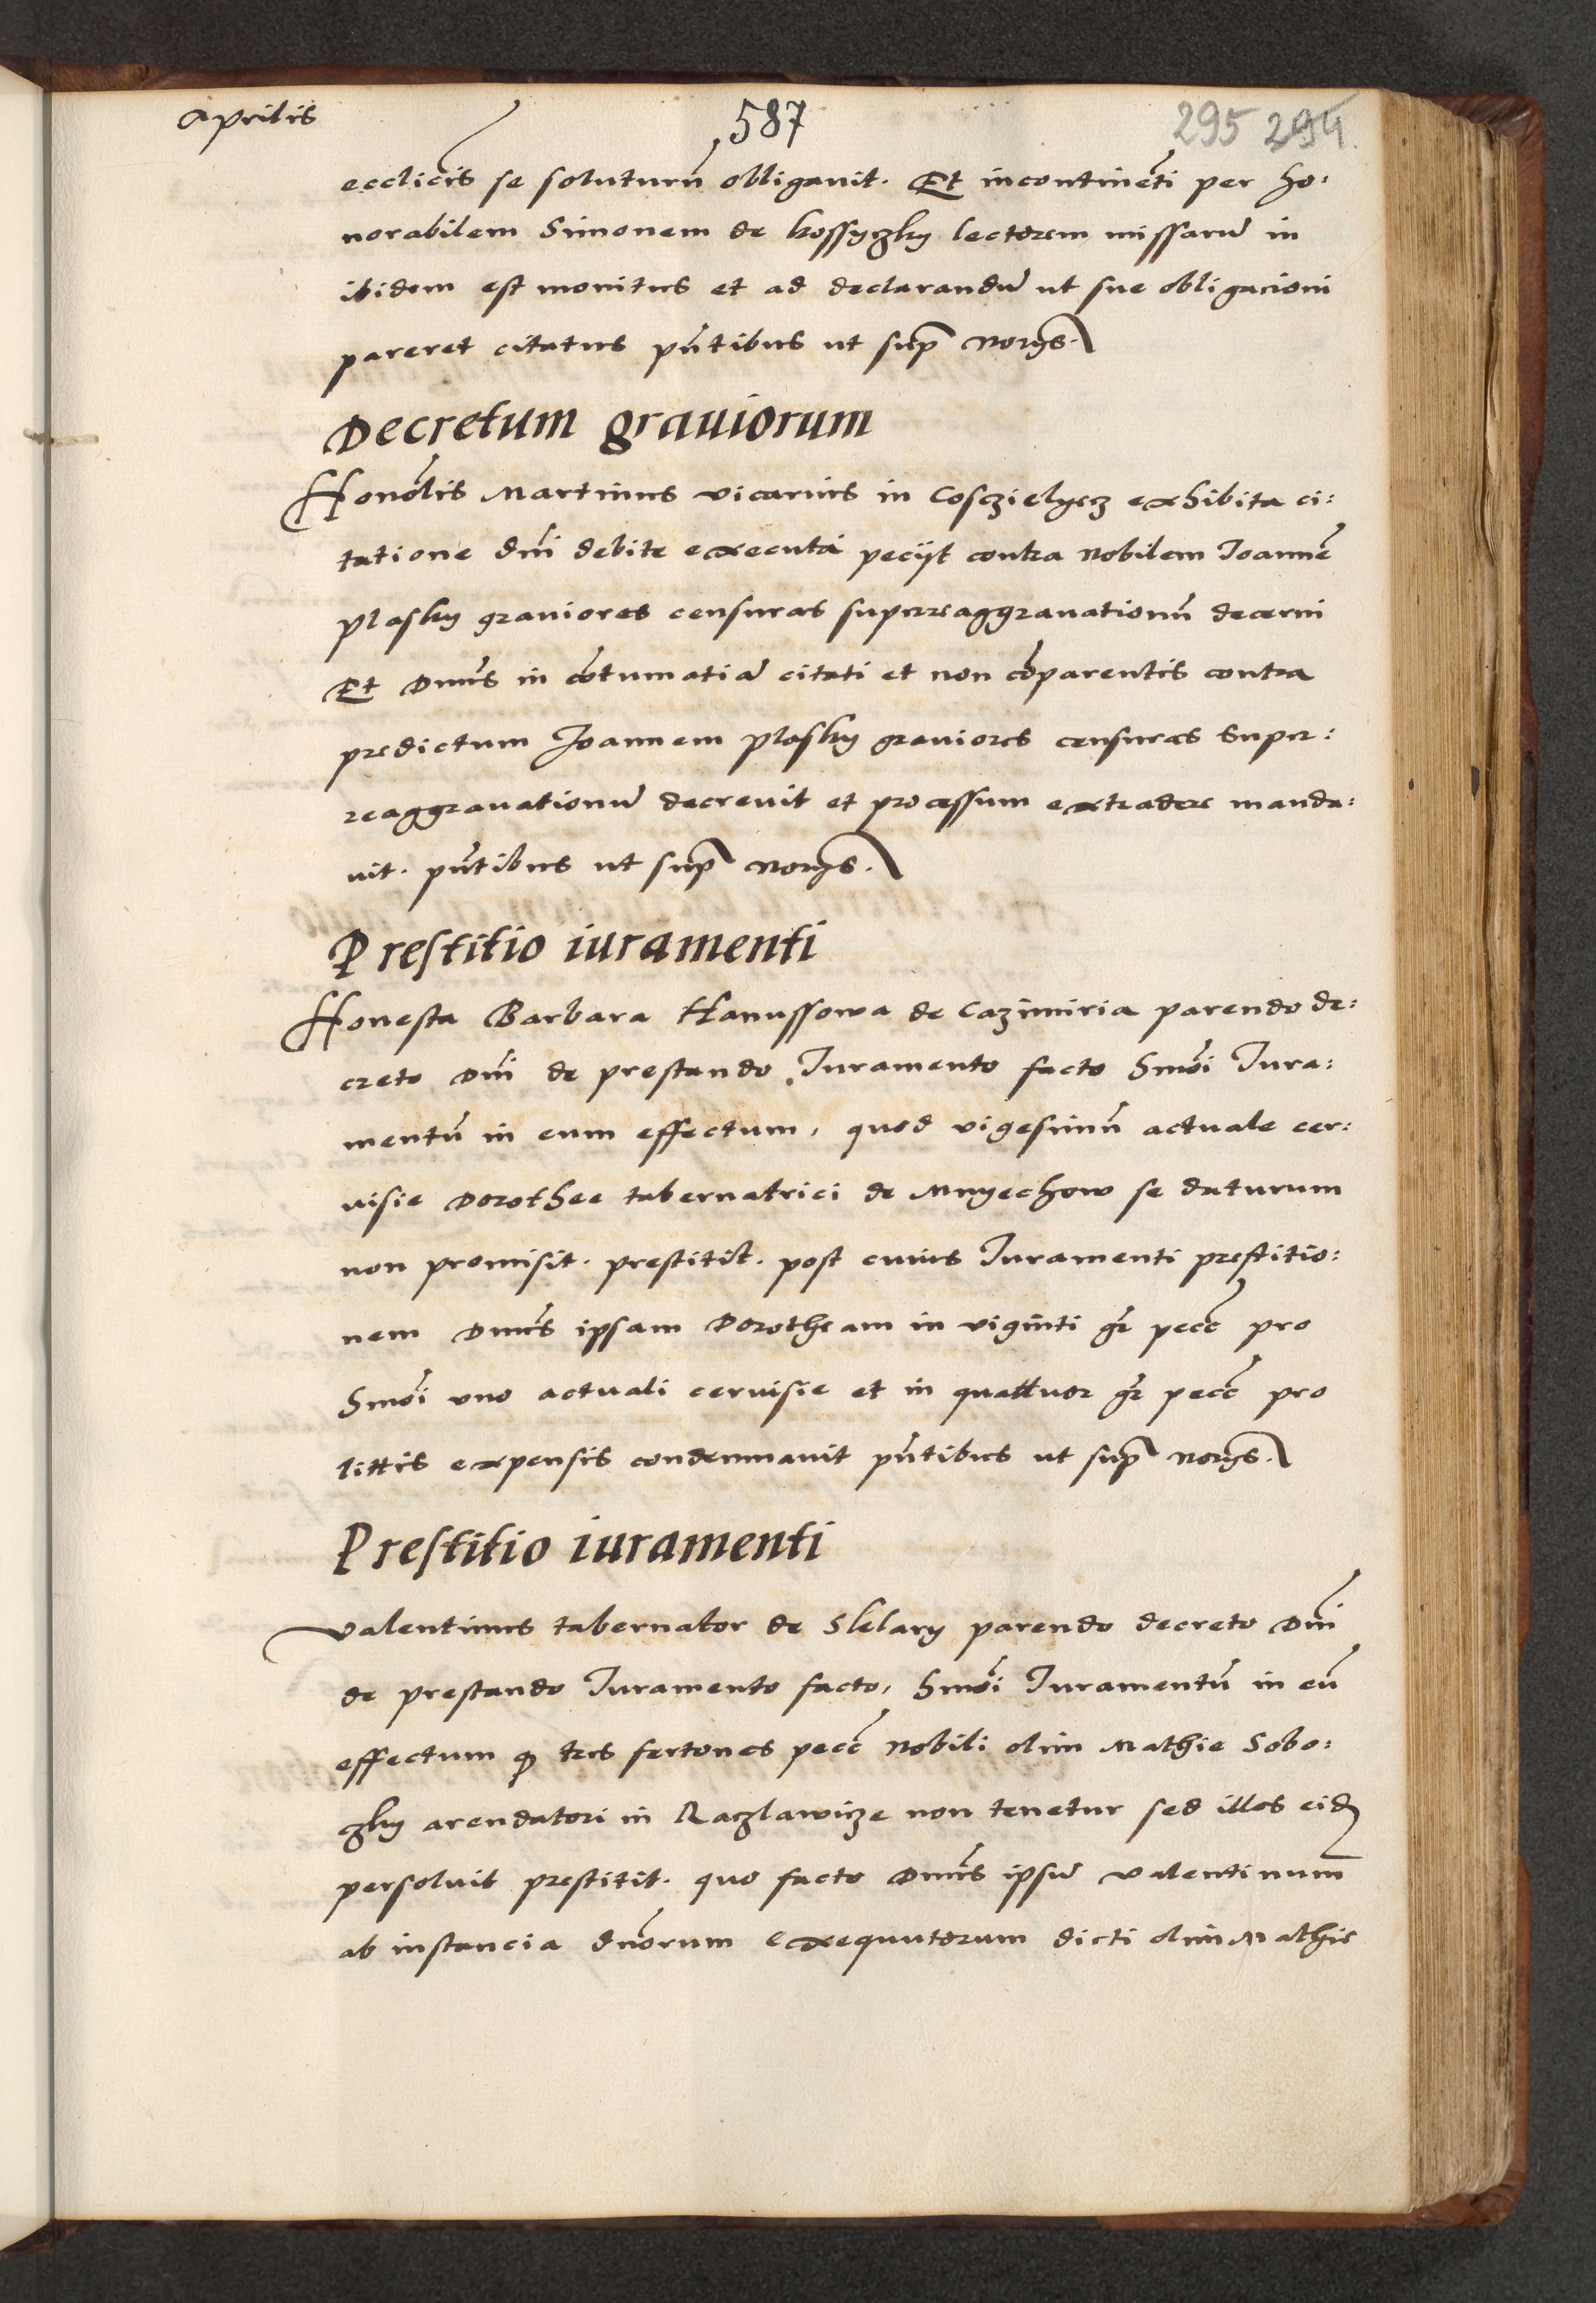 Aprilis
587
295 294
ecclicis se soluturũ obligauit. Et incontinẽti per ho:
norabilem Simonem de kossyczky lectorem missarũ in
ibidem est monitus et ad declarandũ ut sue obligacioni
pareret citatus pñtibus ut supᷓ norijs.
Decretum grauiorum
Honõlis Martinus vicarius in Cosczielyecz exhibita ci:
tatione dñi debite executa pecijt contra nobilem Ioannẽ
plasky grauiores censuras superreaggrauationũ decerni
Et Dnus in cõtumatiã citati et non cõparentis contra
predictum Joannem plasky grauiores censuras Super:
reaggrauationũ decreuit et processum extradere manda:
uit. pñtibus ut supᷓ norijs.
Prestitio iuramenti
Honesta Barbara Hanussowa de Cazimiria parendo de:
creto Dñi de prestando Iuramento facto Hmõi Iura:
mentũ in eum effectum, quod vigesimũ actuale cer:
uisie Dorothee tabernatrici de Mnyechow se daturum
non promisit. prestitit. post cuius Iuramenti prestitio:
nem Dnus ipsam Dorotheam in viginti gr̃ pecc̃ pro
Hmõi vno actuali ceruisie et in quattuor gr̃ pecc̃ pro
littis expensis condemnauit pñtibus ut supᷓ norijs.
Prestitio iuramenti
Valentinus tabernator de Sklary parendo decreto Dñi
de prestando Iuramento facto, Hmõi Iuramentũ in eũ
effectum ꝙ tres fertones pecc̃ Nobili olim Mathie Sobo:
czky arendatori in Raczlawicze non tenetur sed illos eidẽ
persoluit prestitit. quo facto Dnus ipsũ Valentinum
ab instancia dnõrum exequutorum dicti olim Mathie